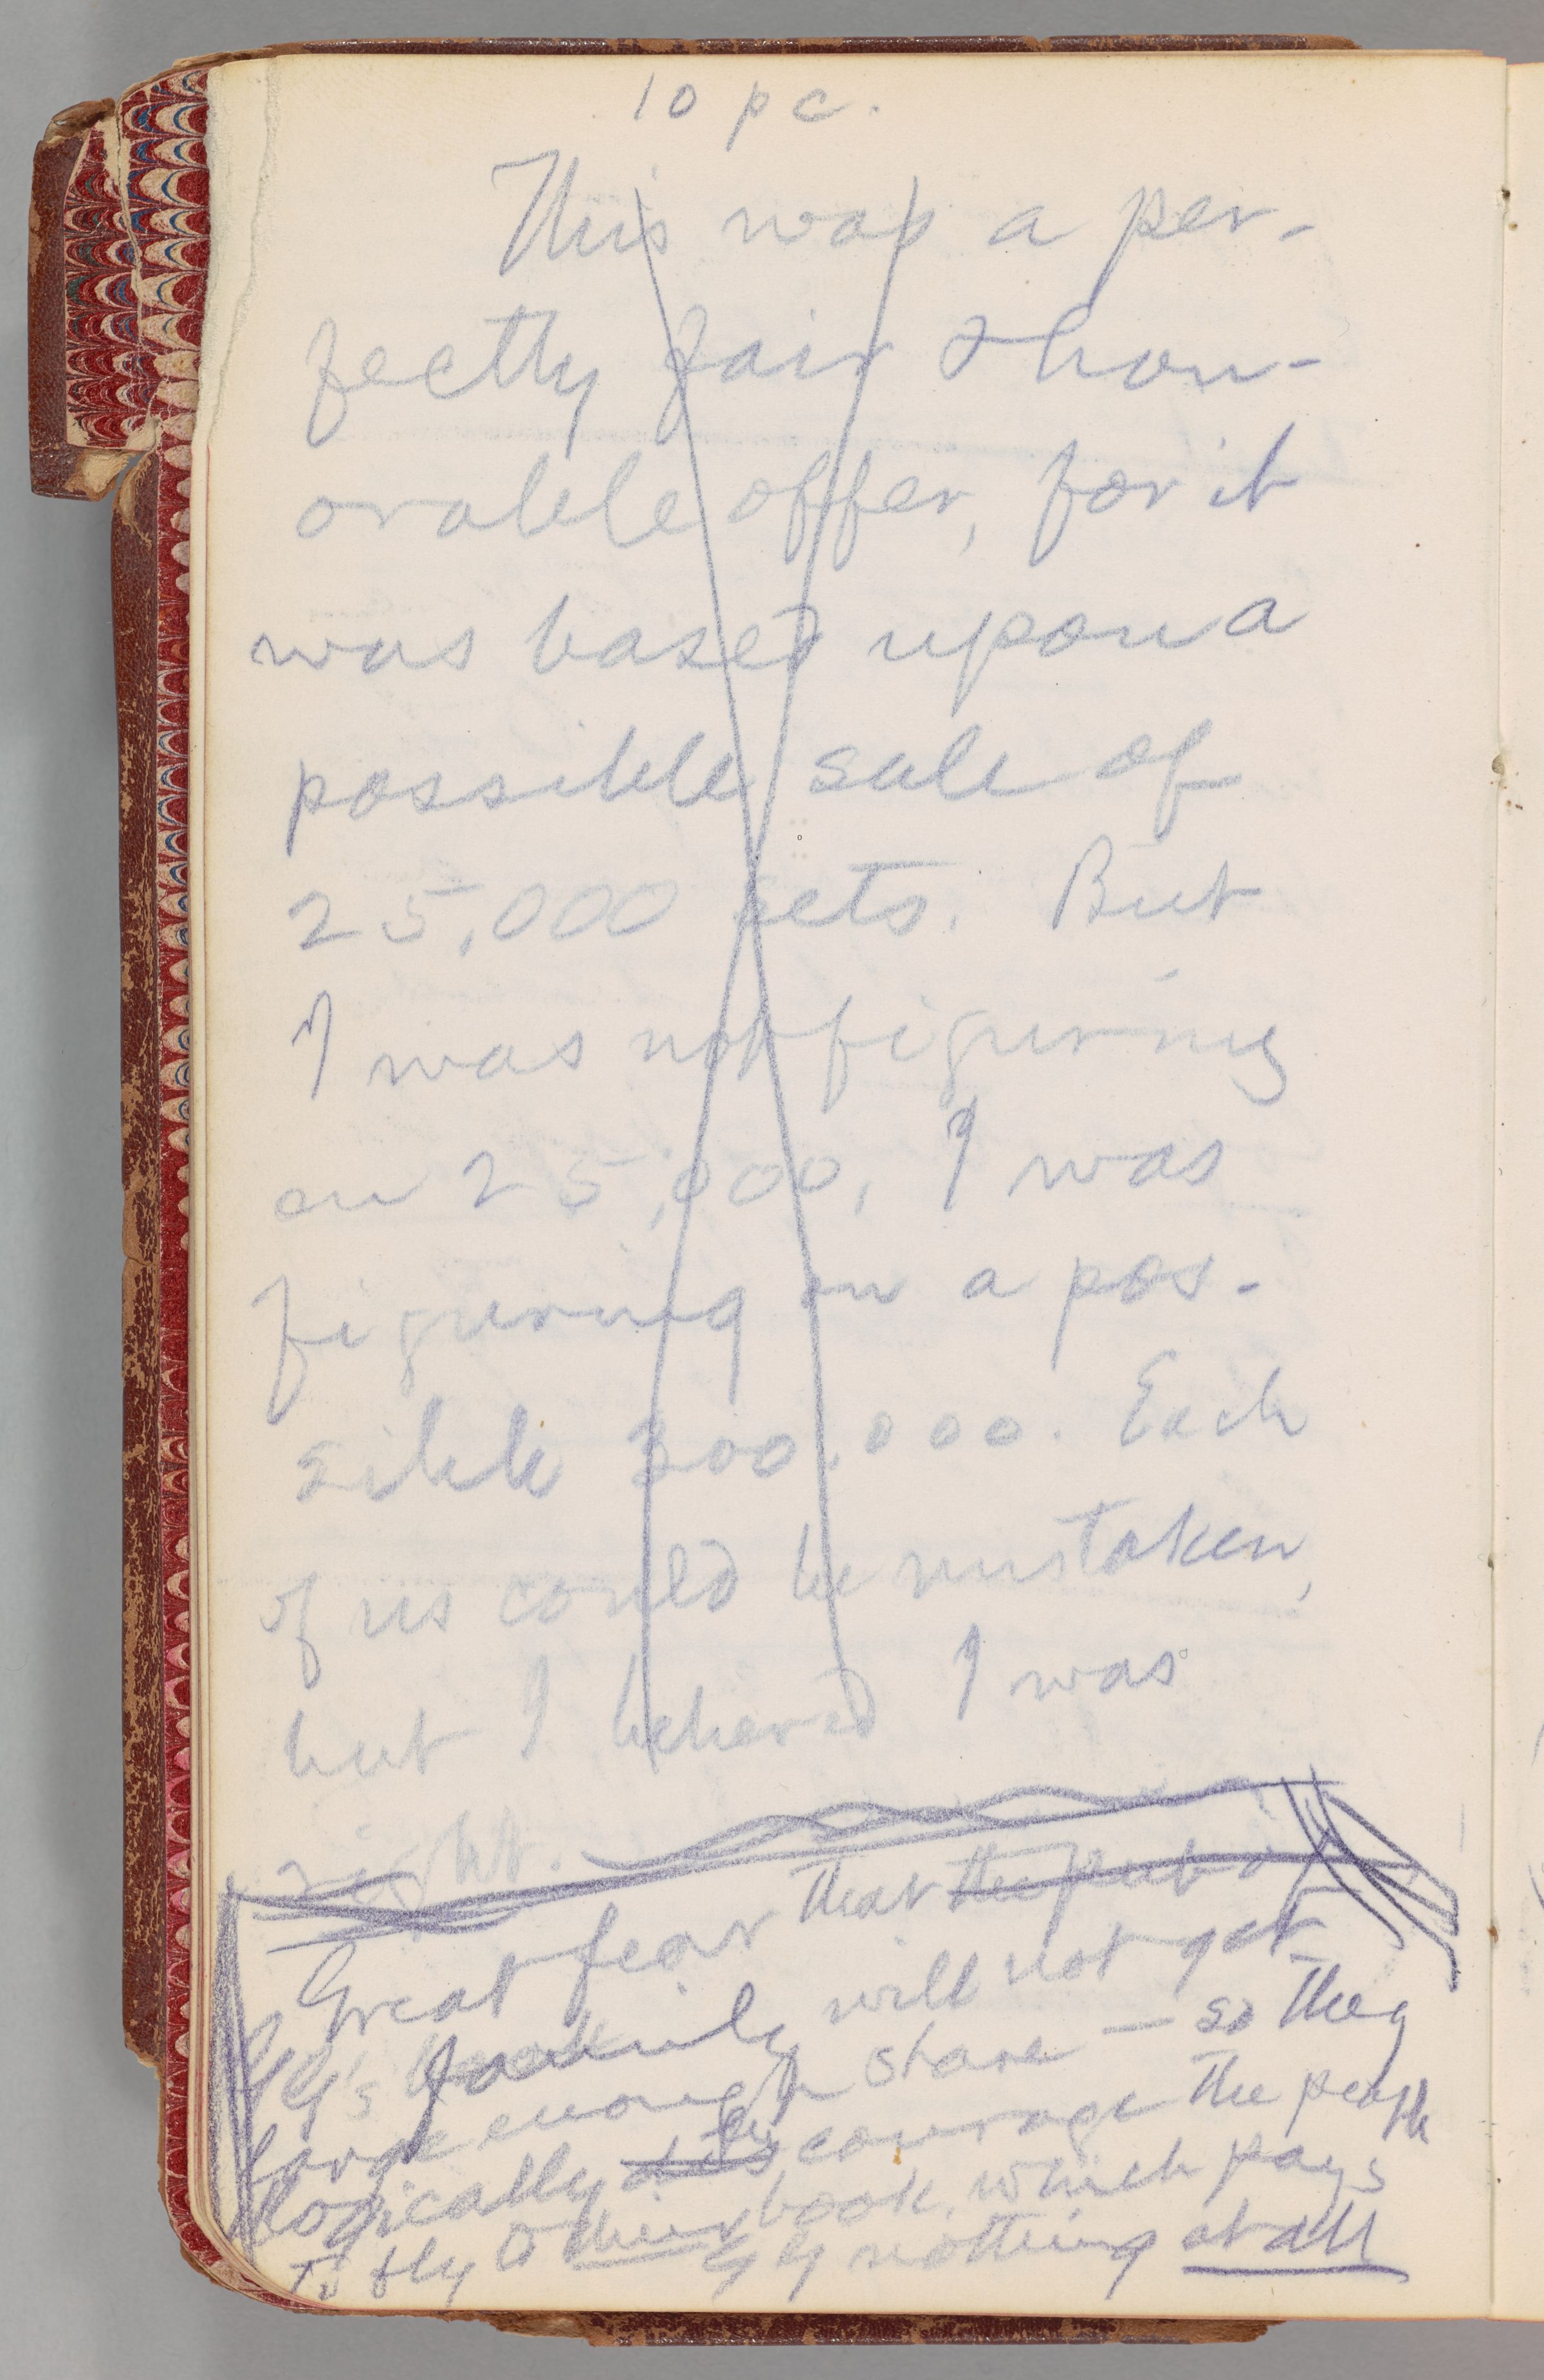 10 p c.
This was a per-
fectly fair & hon-
orable offer, for it
was based upon a
possible sale of
25,000 sets. But
I was not figuring
on 25,000, I was
figuring on a pos-
sible 300,000. Each
of us could be mistaken,
but I believed I was
right.
Great fear that the pub of
GG's family will not get
large enough share — so they
logically encourage the people
to fly to their book, which pays
GG nothing at all